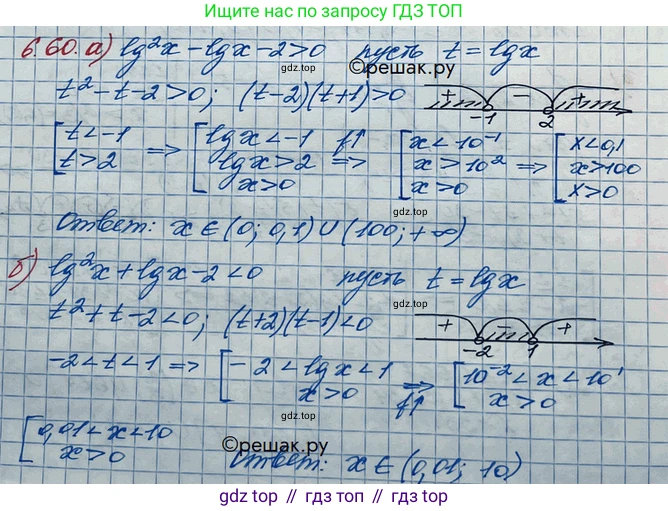 Ищите нас по запросу ГДЗ ТОП
6.60. а) lg²x - lgx - 2 > 0 пусть t = lgx
gdz.top
©решак.ру
t² - t - 2 > 0; (t-2)(t+1) > 0
+ - +
-1 2
[ t < -1
t > 2
=> [ lgx < -1
lgx > 2
x > 0
f↑
=> [ x < 10⁻¹
x > 10²
x > 0
=> [ x < 0,1
x > 100
x > 0
Ответ: x ∈ (0; 0,1) ∪ (100; +∞)
gdz.top
б) lg²x + lgx - 2 < 0 пусть t = lgx
t² + t - 2 < 0; (t+2)(t-1) < 0
+ - +
-2 1
-2 < t < 1 => [ -2 < lgx < 1
x > 0
=>
f↑
[ 10⁻² < x < 10¹
x > 0
gdz.top
[ 0,01 < x < 10
x > 0
©решак.ру
Ответ: x ∈ (0,01; 10)
gdz.top // гдз.top // гдз.топ